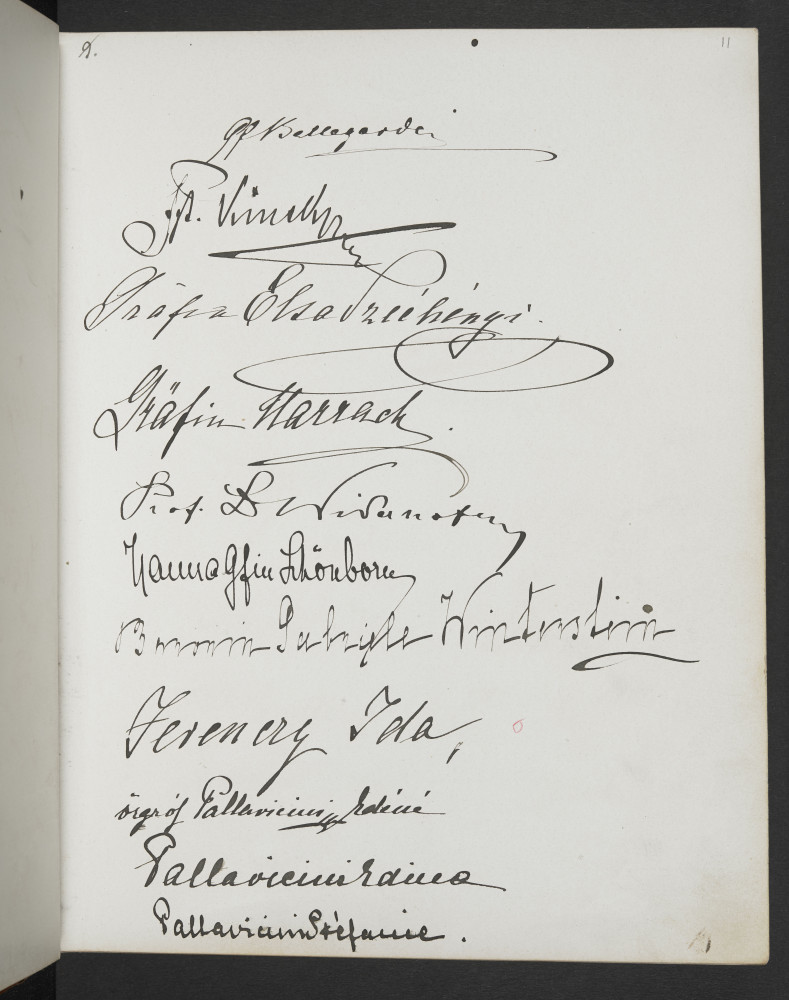 11
Gf Bellegarde
Fst. Kinsky
Gräfin Elsa Széchényi.
Gräfin Harrach.
Prof. D
Hanna Gfin Schönborn
Baronin Gabriele Winterstein
Ferenczy Ida,
őrgróf Pallavicini Edéné
Pallavicini Edina
Pallavicini Stéfanie.